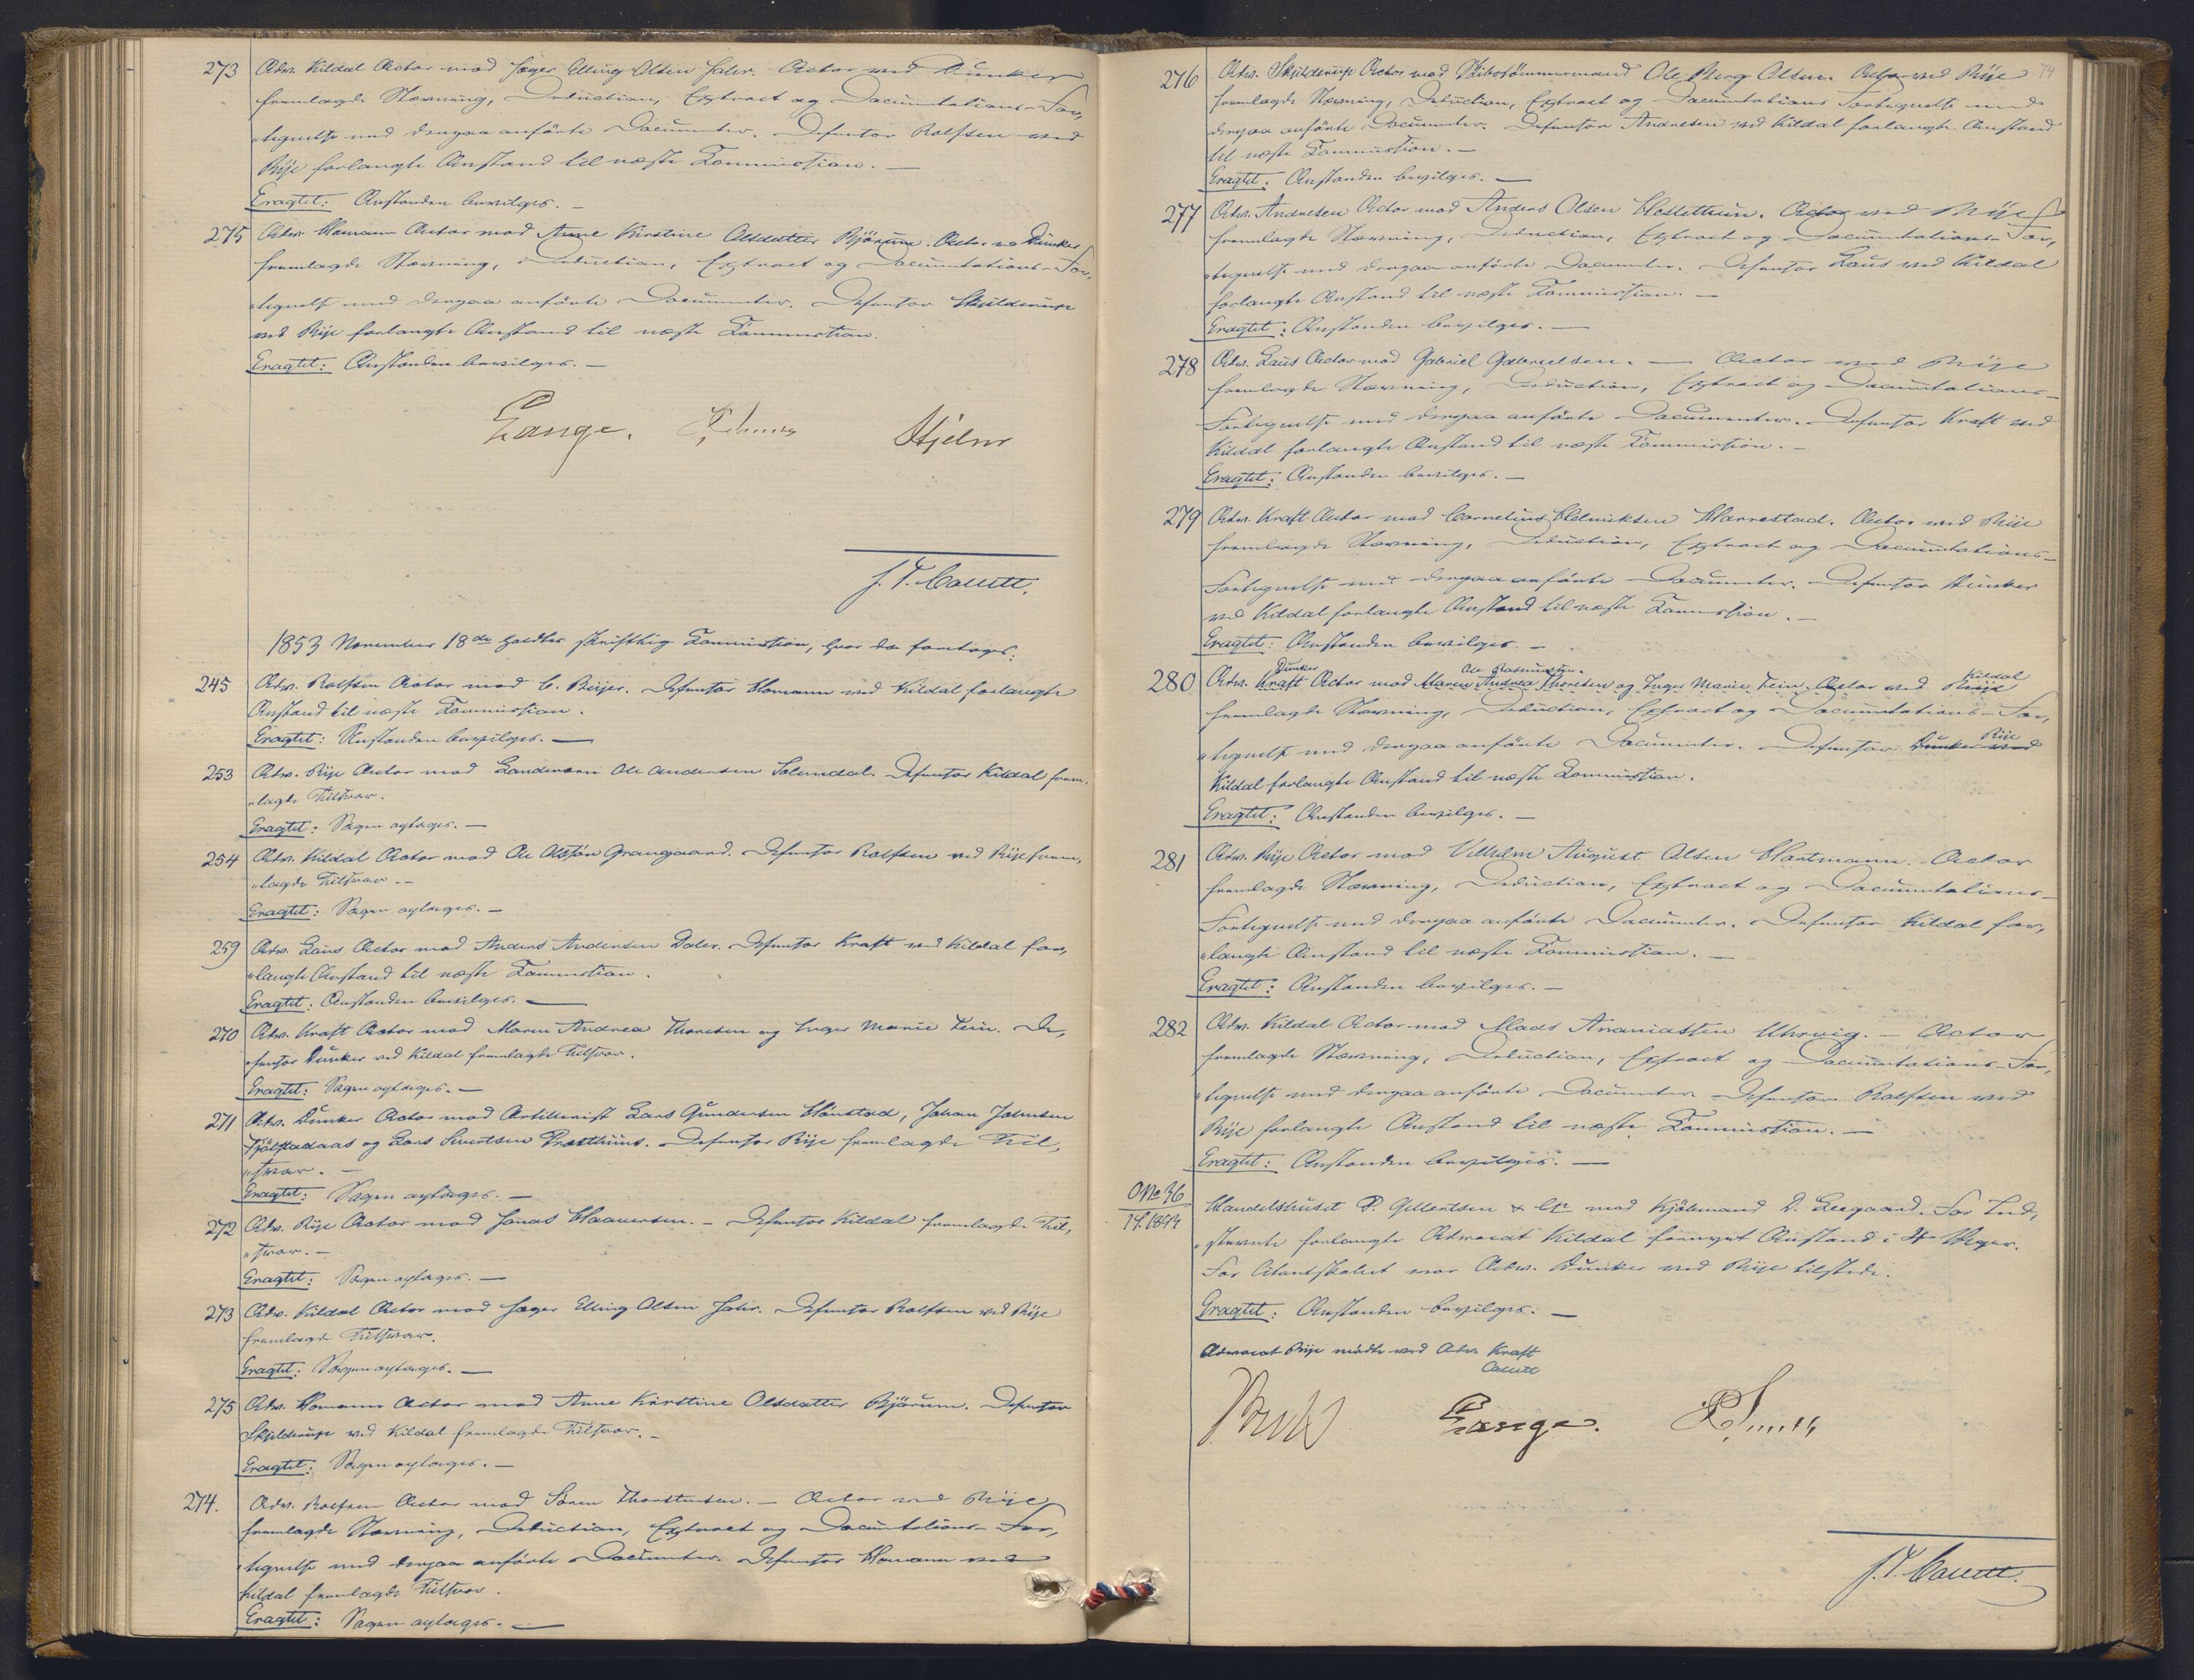 273 Adv. Kildal Actor mod Jæger Elling Olsen Hahr. Actor ved Dunker
fremlagde Stævning, Deduction, Extract og Documentations-For,
"tegnelse med derpaa anførte Documenter. Defensor Rolfsen ved
Rije forlangte Anstand til næste Kommission. —
Eragtet: Anstanden bevilges. —
275 Adv. Homann Actor mod Anne Kirstine Olsdatter Bjørum. Actor ved Dunker
fremlagde Stævning, Deduction, Extract og Documentations-For,
"tegnelse med derpaa anførte Documenter. Defensor Skjelderup
ved Rije forlangte Anstand til næste Kommission.
Eragtet: Anstanden bevilges. —
Lange. Hjelm
J. P. Collett.
1853 November 18de holdtes skriftlig Kommission, hvor da foretoges:
245 Adv. Rolfsen Actor mod C. Beijer. Defensor Homann ved Kildal forlangte
Anstand til næste Kommission.
Eragtet: Anstanden bevilges. —
253 Adv. Rije Actor mod Landværn Ole Andersen Solemdal. Defensor Kildal frem,
"lagde Tilsvar.
Eragtet: Sagen optages. —
254 Adv. Kildal Actor mod Ole Olssøn Grangaard. Defensor Rolfsen ved Rije frem,
"lagde Tilsvar. —
Eragtet: Sagen optages. —
259 Adv. Laus Actor mod Anders Andersen Doler. Defensor Kraft ved Kildal for,
"langte Anstand til næste Kommission.
Eragtet: Anstanden bevilges. —
270 Adv. Kraft Actor mod Maren Andrea Thoresen og Inger Marie Lein. De,
"fensor Dunker ved Kildal fremlagde Tilsvar.
Eragtet: Sagen optages. —
271 Adv. Dunker Actor mod Artillerist Lars Gundersen Hønstad, Johan Johnsen
Fjølstadaas og Lars Sivertsen Præsthuus. Defensor Rije fremlagde Til,
"svar. —
Eragtet: Sagen optages. —
272 Adv. Rije Actor mod Jonas Haaversen. — Defensor Kildal fremlagde Til,
"svar. —
Eragtet: Sagen optages. —
273 Adv. Kildal Actor mod Jæger Elling Olsen Hahr. Defensor Rolfsen ved Rije
fremlagde Tilsvar.
Eragtet: Sagen optages. —
275 Adv. Homann Actor mod Anne Kirstine Olsdatter Bjørum. Defensor
Skjelderup ved Kildal fremlagde Tilsvar. —
Eragtet: Sagen optages. —
274. Adv. Rolfsen Actor mod Søren Thorstensen. — Actor ved Rije
fremlagde Stævning, Deduction, Extract og Documentations-For,
"tegnelse med derpaa anførte Documenter. Defensor Homann ved
Kildal fremlagde Tilsvar.
Eragtet: Sagen optages. —
74
276 Adv. Skjelderup Actor mod Skibstømmermand Ole Berg Olsen. Actor ved Rije
fremlagde Stævning, Deduction, Extract og Documentations Fortegnelse med
derpaa anførte Documenter. Defensor Andresen ved Kildal forlangte Anstand
til næste Kommission. —
Eragtet: Anstanden bevilges. —
277 Adv. Andresen Actor mod Anders Olsen Holtethuun. Actor ved Rije
fremlagde Stævning, Deduction, Extract og Documentations-For,
"tegnelse med derpaa anførte Documenter. Defensor Laus ved Kildal
forlangte Anstand til næste Kommission. —
Eragtet: Anstanden bevilges. —
278 Adv. Laus Actor mod Gabriel Gabrielsen. — Actor ved Rije
fremlagde Stævning, Deduction, Extract og Documentations-
Fortegnelse med derpaa anførte Documenter. Defensor Kraft ved
Kildal forlangte Anstand til næste Kommission. —
Eragtet: Anstanden bevilges. —
279 Adv. Kraft Actor mod Cornelius Helmiksen Harrestad. Actor ved Rije
fremlagde Stævning, Deduction, Extract og Documentations-
Fortegnelse med derpaa anførte Documenter. Defensor Dunker
ved Kildal forlangte Anstand til næste Kommission. —
Eragtet: Anstanden bevilges. —
Dunker Ole Rasmussen. Kildal
280 Adv. Kraft Actor mod Maren Andrea Thoresen og Inger Marie Lein. Actor ved Rije
fremlagde Stævning, Deduction, Extract og Documentations-For,
Rije
"tegnelse med derpaa anførte Documenter. Defensor Dunker ved
Kildal forlangte Anstand til næste Kommission.
Eragtet: Anstanden bevilges. —
281 Adv. Rije Actor mod Vilhelm August Olsen Hartmann. Actor
fremlagde Stævning, Deduction, Extract og Documentations-
Fortegnelse med derpaa anførte Documenter. Defensor Kildal for,
"langte Anstand til næste Kommission. —
Eragtet: Anstanden bevilges. —
282 Adv. Kildal Actor mod Mads Ananiassen Uhrvig. — Actor
fremlagde Stævning, Deduction, Extract og Documentations-For,
"tegnelse med derpaa anførte Documenter. Defensor Rolfsen ved
Rije forlangte Anstand til næste Kommission. —
Eragtet: Anstanden bevilges. —
ONo 36
Handelshuset P. Gellertsen & Co mod Kjøbmand D. Leegaard. For Ind,
"stevnte forlangte Advocat Kildal fornyet Anstand i 4 Uger.
For Citantskabet var Adv. Dunker ved Rije tilstede.
Eragtet: Anstanden bevilges. —
Advocat Rije mødte ved Adv. Kraft
Collett
Lange.
J. P. Collett.